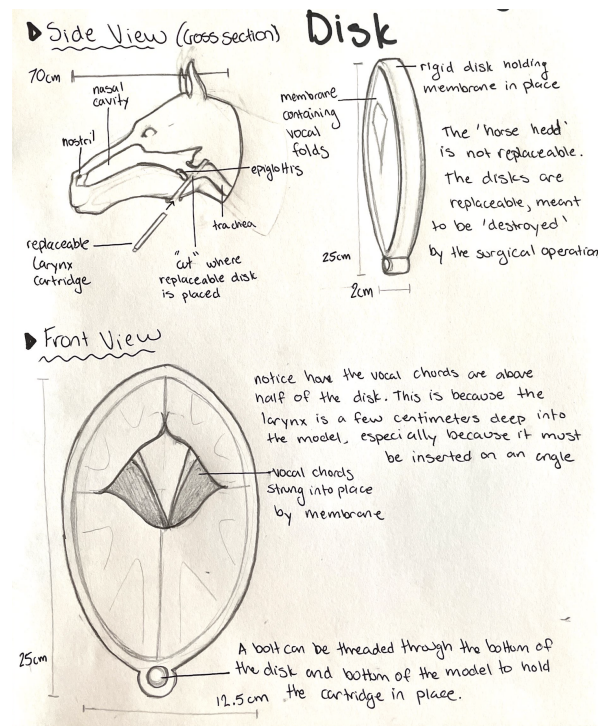 Side View (Cross section)
Disk
70cm
nasal
cavity
nostril
epiglottis
trachea
replaceable
larynx
cartridge
"cut" where
replaceable disk
is placed
membrane
containing
vocal
folds
rigid disk holding
membrane in place
The 'horse head'
is not replaceable.
The disks are
replaceable, meant
to be 'destroyed'
by the surgical operation
25cm
2cm
Front View
notice how the vocal chords are above
half of the disk. This is because the
larynx is a few centimeters deep into
the model, especially because it must
be inserted on an angle
vocal chords
strung into place
by membrane
25cm
A bolt can be threaded through the bottom of
the disk and bottom of the model to hold
the cartridge in place.
12.5cm